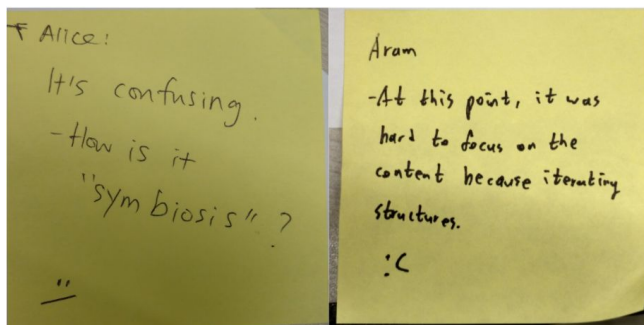 Alice:
It's confusing.
- How is it
"symbiosis"?
Aram
- At this point, it was
hard to focus on the
content because iterating
structures.
:C